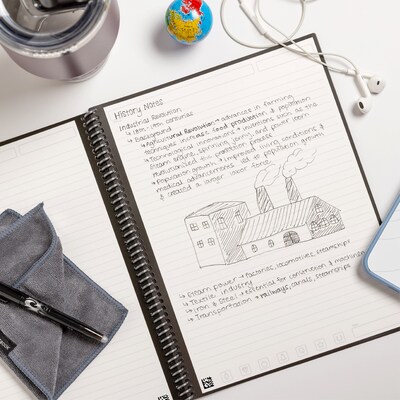 History Notes
Industrial Revolution
↳ 18th-19th centuries
↳ Background
↳ Agricultural Revolution → advances in farming
techniques increased food production & population
↳ Technological innovations → inventions such as the
steam engine, spinning jenny, and power loom
revolutionized the production process
↳ Population growth → improved living conditions &
medical advancements led to population growth
& created a larger labor force
↳ Steam power → factories, locomotives, steamships
↳ Textile industry
↳ Iron & Steel → essential for construction & machines
↳ Transportation → railways, canals, steamships